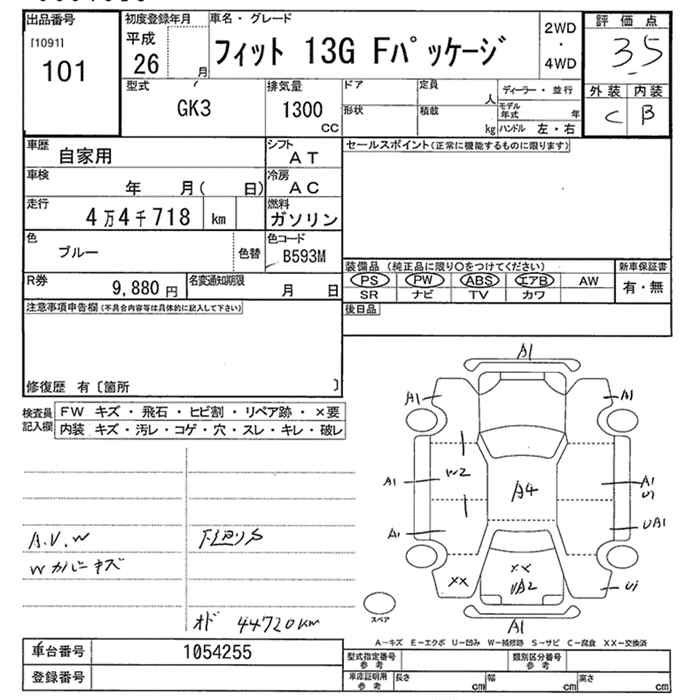 出品番号
[1091]
101
初度登録年月
平成
26 月
車名・グレード
フィット 13G Fパッケージ
2WD
・
4WD
評価点
3.5
外装 内装
C B
型式
GK3
排気量
1300
cc
ドア
形状
定員
人
積載
kg
ディーラー・並行
モデル年式 年
ハンドル 左・右
車歴
自家用
シフト
AT
車検
年 月( 日)
冷房
AC
走行
4万4千718 km
燃料
ガソリン
色
ブルー
色替
色コード
B593M
R券
9,880 円
名変通知期限
月 日
セールスポイント(正常に機能するものに限ります)
装備品 (純正品に限り○をつけてください)
PS PW ABS エアB AW
SR ナビ TV カワ
新車保証書
有・無
後日品
注意事項申告欄(不具合内容等は具体的に記入して下さい)
修復歴 有〔箇所 〕
検査員記入欄
FW キズ・飛石・ヒビ割・リペア跡・×要
内装 キズ・汚レ・コゲ・穴・スレ・キレ・破レ
A.V.W
Wカバーキズ
オド 44720KM
A1
A1
A1
W2
A4
A1
A1
U1
A1
UA1
XX
XX
UA2
U1
A1
スペア
A-キズ E-エクボ U-凹み W-補修跡 S-サビ C-腐食 XX-交換済
車台番号 1054255
登録番号
型式指定番号
参考
類別区分番号
参考
車庫証明用
参考
長さ cm
幅 cm
高さ cm